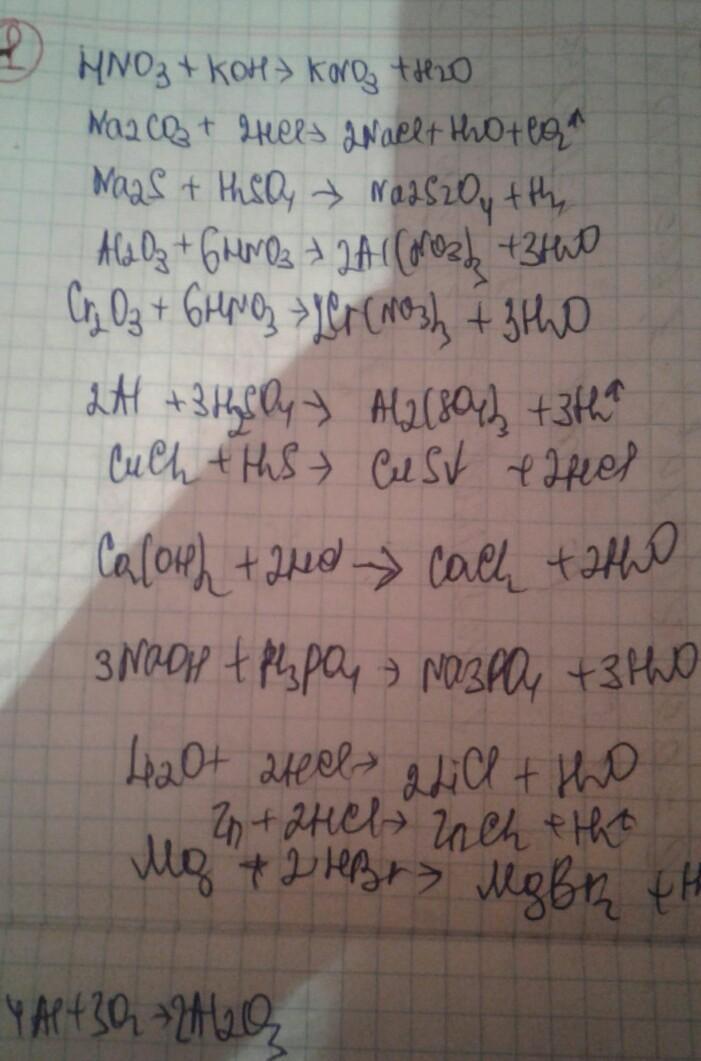 1
HNO3 + KOH → KNO3 + H2O
Na2CO3 + 2HCl → 2NaCl + H2O + CO2↑
Na2S + H2SO4 → Na2S2O4 + H2
Al2O3 + 6HNO3 → 2Al(NO3)3 + 3H2O
Cr2O3 + 6HNO3 → 2Cr(NO3)3 + 3H2O
2Al + 3H2SO4 → Al2(SO4)3 + 3H2↑
CuCl2 + H2S → CuS↓ + 2HCl
Ca(OH)2 + 2HCl → CaCl2 + 2H2O
3NaOH + H3PO4 → Na3PO4 + 3H2O
Li2O + 2HCl → 2LiCl + H2O
Zn + 2HCl → ZnCl2 + H2↑
Mg + 2HBr → MgBr2 + H
4Al + 3O2 → 2Al2O3